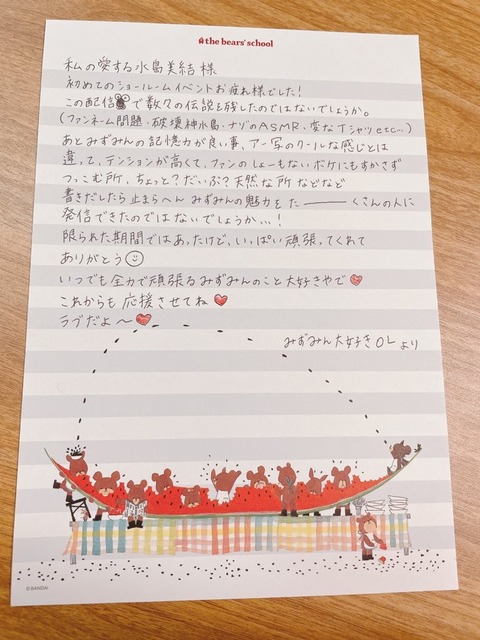 the bears' school
私の愛する水島美結様
初めてのショールームイベントお疲れ様でした!
この配信で数々の伝説を残したのではないでしょうか。
(ファンネーム問題・破壊神水島・ナゾのASMR、変なTシャツetc...)
あとみずみんの記憶力が良い事、アー写のクールな感じとは
違って、テンションが高くて、ファンのしょーもないボケにもすかさず
つっこむ所、ちょっと?だいぶ?天然な所などなど
書きだしたら止まらへんみずみんの魅力をたーーーくさんの人に
発信できたのではないでしょうか...!
限られた期間ではあったけど、いっぱい頑張ってくれて
ありがとう
いつでも全力で頑張るみずみんのこと大好きやで
これからも応援させてね
ラブだよ〜
みずみん大好きOLより
©BANDAI